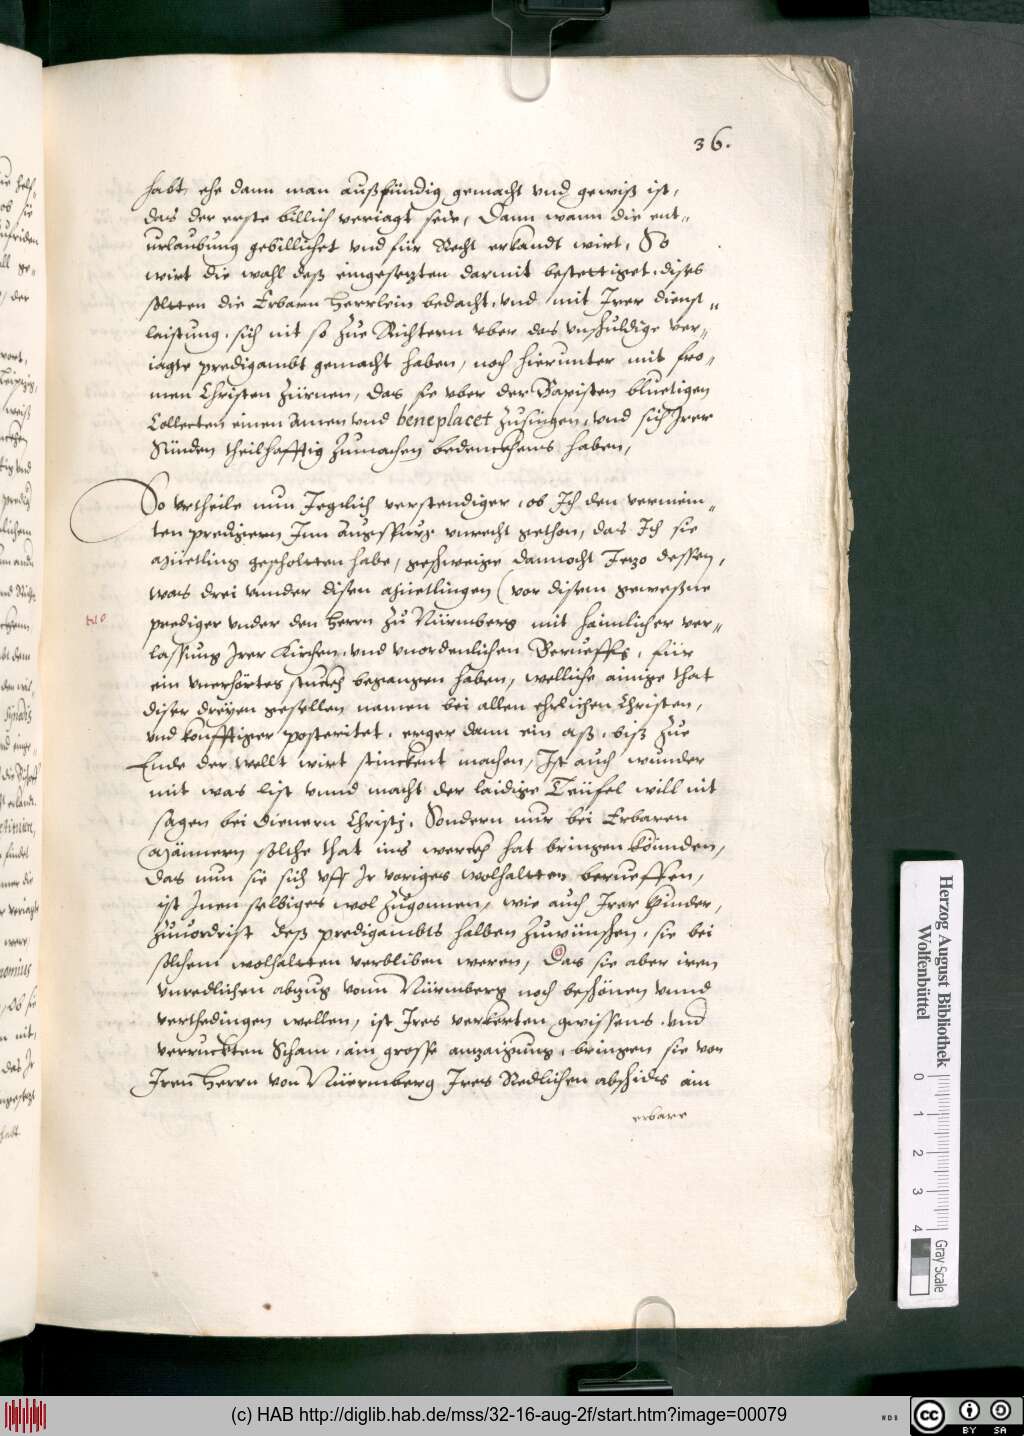 36.
habt, ehe dann man außfündig gemacht vnd gewiß ist,
das der erste billich veriagt seie, Dann wann die ent-
urlaubung gebillichet vnd für Recht erkandt wirt, So
wirt die wahl deß eingesetzten darmit bestettiget. dises
soltten die Erbarn Herrlein bedacht, vnd mit Irer dienst-
laistung, sich nit so zue Richtern vber das vnschuldige ver-
iagte predigambt gemacht haben, noch hierunter mit fro-
men Christen zürnen, das sie vber der Papisten bluetigen
Collecten einen Amen vnd beneplacet zusingen, vnd sich Irer
Sünden theilhafftig zumachen bedenckhens haben,
So vrtheile nun Jegclich verstendiger, ob Ich den vermein-
ten predigern Inn Augspurg vnrecht gethon, das Ich sie
Müetling gescholtten habe, geschweige dannocht Jezo dessen,
was drei vnnder disen Müetlingen (vor disem geweßne
prediger vnder den Herrn zu Nürmberg mit haimlicher ver-
lassung Irer Kirchen, vnd vnordenlichen Berueffs, für
ein vnerhörtes stuckh begangen haben, welliche ainige that
diser dreyen gesellen namen bei allen ehrlichen Christen,
vnd konfftiger posteritet, erger dann ein aß, biß zue
Ende der wellt wirt stinckent machen, Ist auch wunder
mit was list vnnd macht der laidige Teüfel will nit
sagen bei dienern Christj, Sondern nur bei Erbaren
Männern solche that ins werckh hat bringen könnden,
Das nun sie sich vff Ir voriges wolhaltten berueffen,
ist Inen selbiges wol zugonnen, wie auch Irer Kinder,
zuuordrist deß predigambts halben zuwünschen, sie bei
solchem wolhaltten verbliben weren, Das sie aber iren
vnredlichen abzug vonn Nürmberg noch beschönen vnnd
verthedingen wellen, ist Ires verkerten gwissens, vnd
verruckten Scham, ain grosse anzaigung, bringen sie von
Iren Herrn von Nüermberg Ires Redlichen abschids ain
erbare
Herzog August Bibliothek
Wolfenbüttel
0 1 2 3 4
Gray Scale
(c) HAB http://diglib.hab.de/mss/32-16-aug-2f/start.htm?image=00079
WDB
cc BY SA